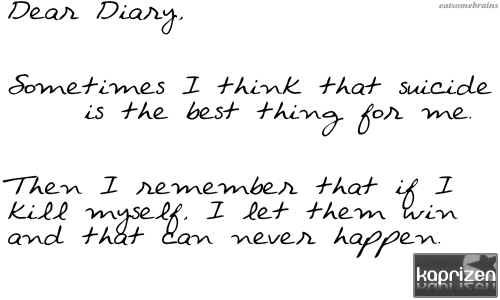 eatsomebrains
Dear Diary,
Sometimes I think that suicide
is the best thing for me.
Then I remember that if I
kill myself, I let them win
and that can never happen.
kaprizen